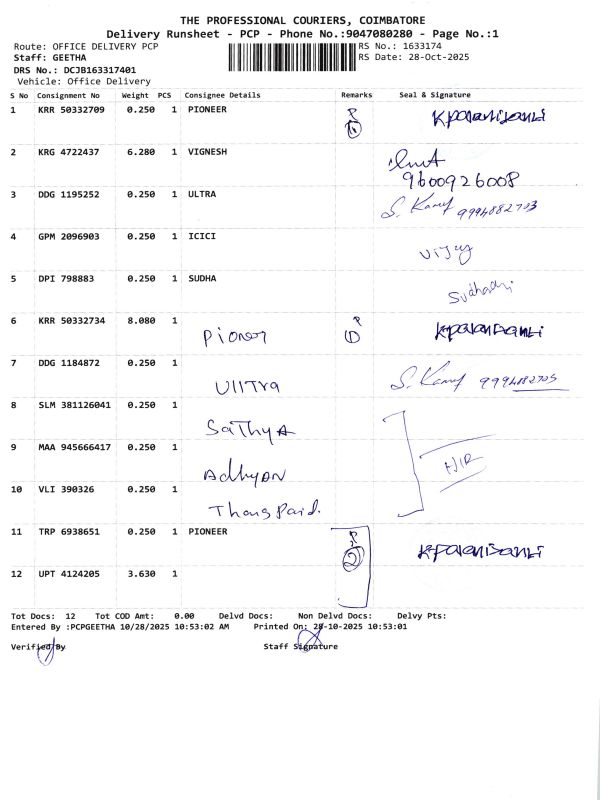 THE PROFESSIONAL COURIERS, COIMBATORE
Delivery Runsheet - PCP - Phone No.:9047080280 - Page No.:1
Route: OFFICE DELIVERY PCP RS No.: 1633174
Staff: GEETHA RS Date: 28-Oct-2025
DRS No.: DCJB163317401
Vehicle: Office Delivery
S No Consignment No Weight PCS Consignee Details Remarks Seal & Signature
1 KRR 50332709 0.250 1 PIONEER
2 KRG 4722437 6.280 1 VIGNESH
9600926008
3 DDG 1195252 0.250 1 ULTRA
4 GPM 2096903 0.250 1 ICICI Vijay
5 DPI 798883 0.250 1 SUDHA
6 KRR 50332734 8.080 1
Pioneer 1
7 DDG 1184872 0.250 1
Ulltra
8 SLM 381126041 0.250 1
Sathya
9 MAA 945666417 0.250 1
Adhyan
10 VLI 390326 0.250 1
11 TRP 6938651 0.250 1 PIONEER 2
12 UPT 4124205 3.630 1
Tot Docs: 12 Tot COD Amt: 0.00 Delvd Docs: Non Delvd Docs: Delvy Pts:
Entered By :PCPGEETHA 10/28/2025 10:53:02 AM Printed On: 28-10-2025 10:53:01
Verified By Staff Signature